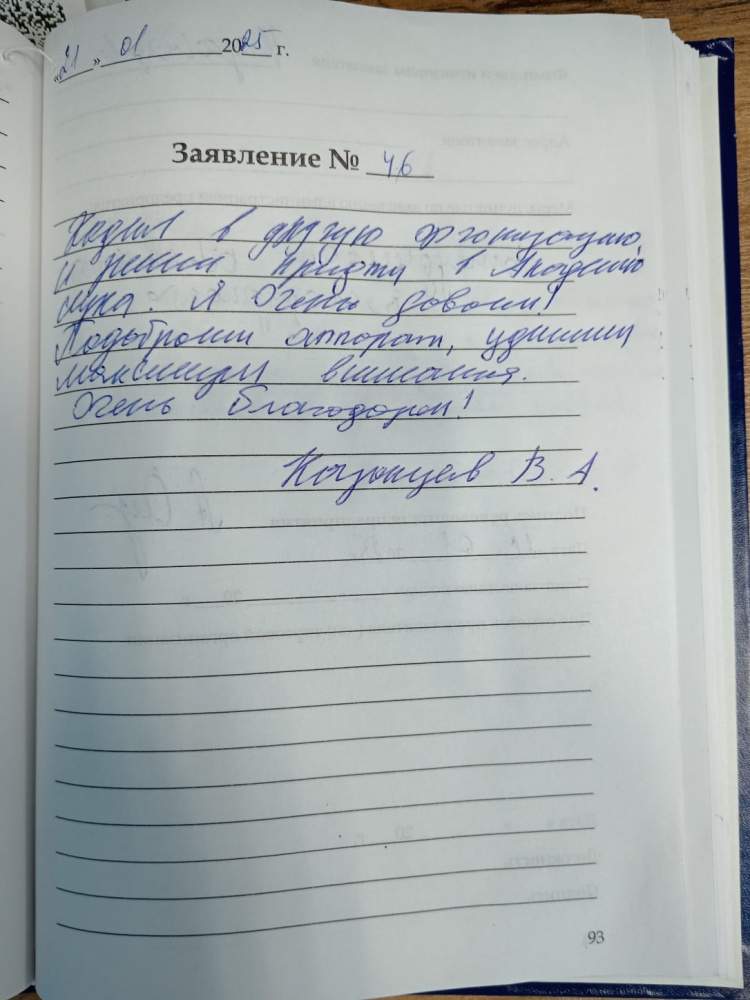 «21» 01 2025 г.
Заявление № 46
Ходил в другую организацию,
и решил придти в Академию
слуха. Я Очень доволен!
Подобрали аппарат, уделили
максимум внимания.
Очень благодарен!
Казанцев В. А.
93